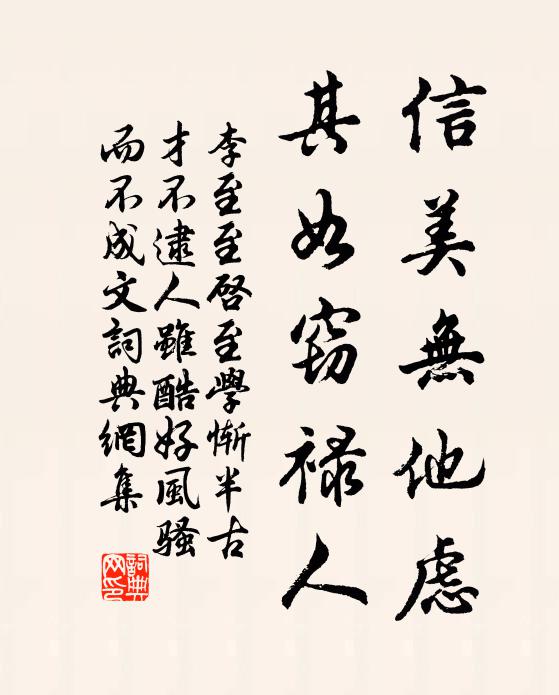 信美無他慮
其如竊祿人
李至至啓至學慚半古
才不逮人雖酷好風騷
而不成文詞典網集
詞典網印